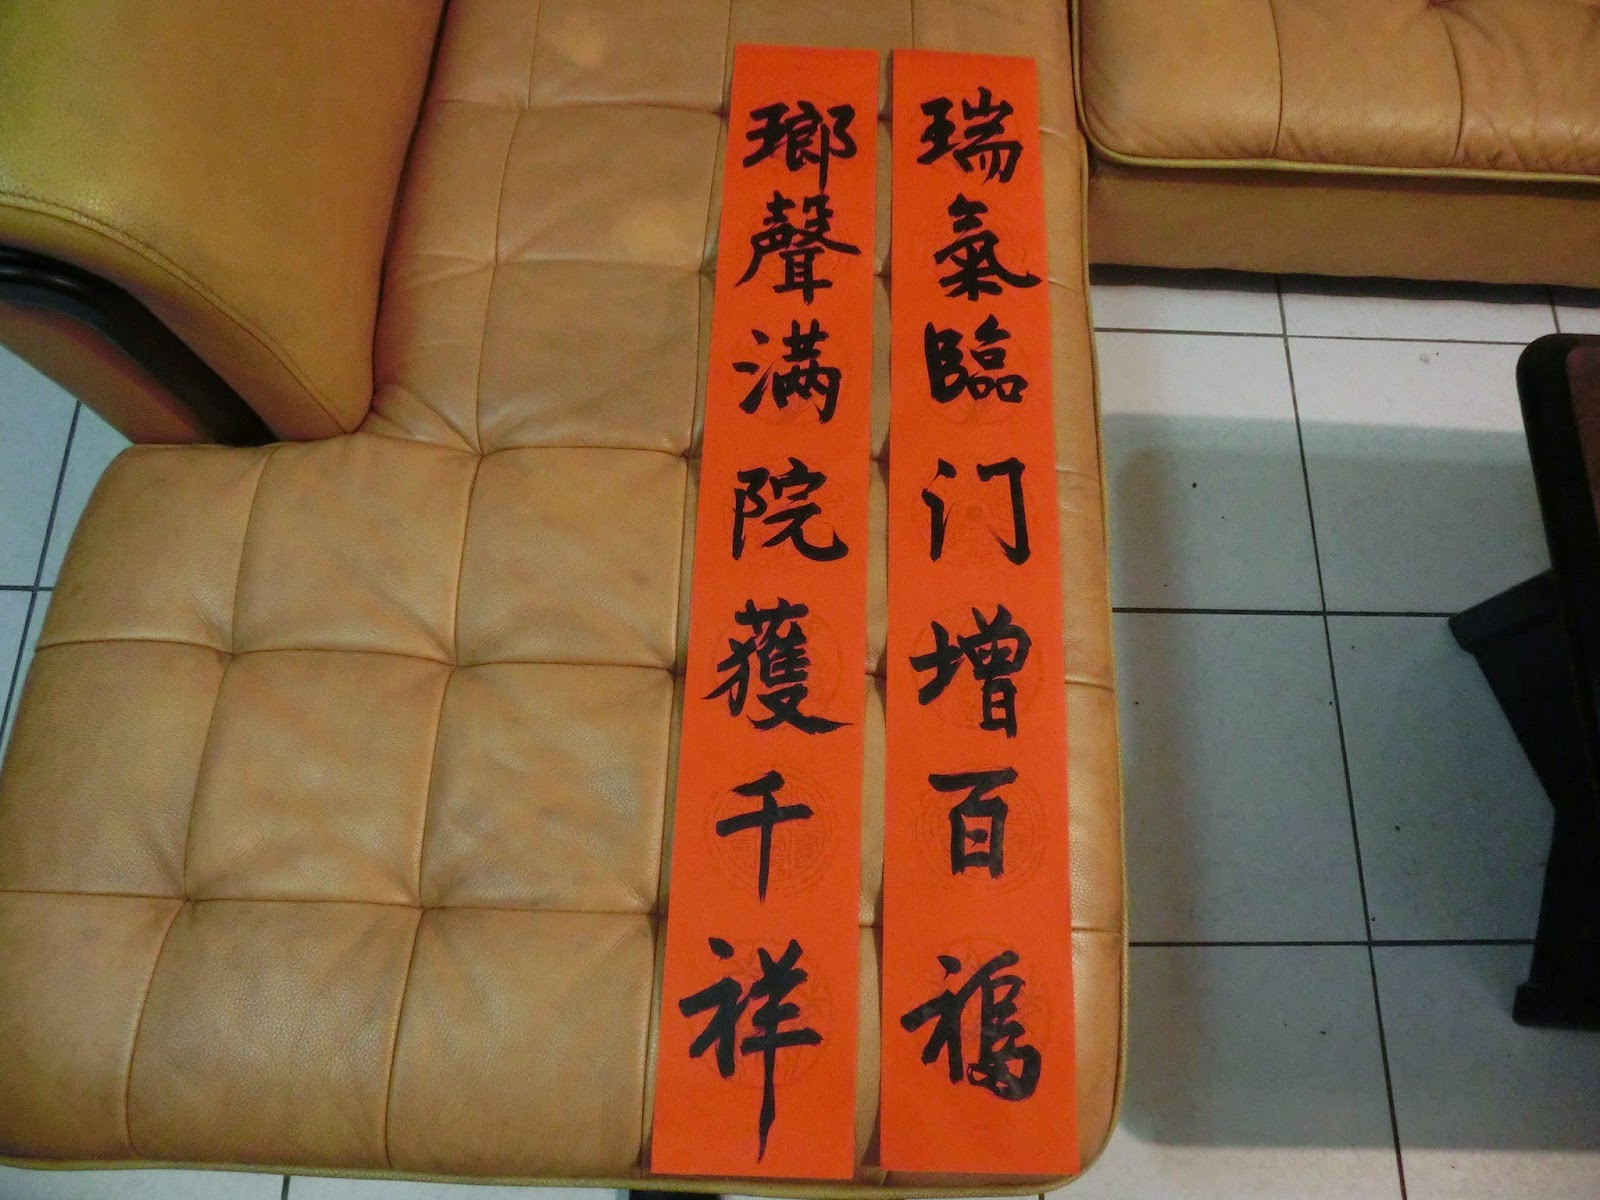 瑞氣臨门增百福
瑯聲满院獲千祥